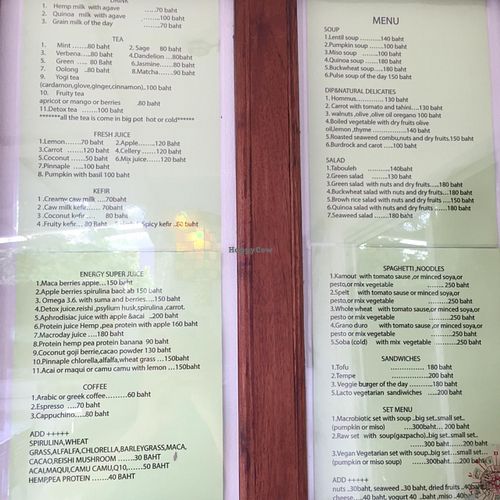 DRINK
1. Hemp milk with agave .....70 baht
2. Quinoa milk with agave ........100 baht
3. Grain milk of the day ........70 baht
TEA
1. Mint ......80 baht 2. Sage 80 baht
3. Verbena.....80 baht 4.Dandelion ....80baht
5. Green .... 80 Baht 6.Jasmine......80 baht
7. Oolong ..80 baht 8.Matcha......90 baht
9. Yogi tea
(cardamon,glove,ginger,cinnamon)..100 baht
10. Fruity tea
apricot or mango or berries .80 baht
11.Detox tea ......100 baht
*******all the tea is come in big pot hot or cold*****
FRESH JUICE
1.Lemon.......70 baht 2.Apple.......120 baht
3.Carrot ......120 baht 4.Cellery .....120 baht
5.Coconut ......50 baht 6.Mix juice......120 baht
7.Pinnaple .....100 baht
8. Pumpkin with basil 100 baht
KEFIR
1.Creamy caw milk ....70baht
2.Caw milk kefir....... 70baht
3.Coconut kefir .... 80 baht
4.Fruity kefir... 80 Baht Spicy kefir ..80 baht
ENERGY SUPER JUICE
1.Maca berries appie...150 baht
2.Apple berries spirulina baot ab 150 baht
3. Omega 3.6. with suma and berries....150 baht
4.Detox juice.reishi ,psylium husk,spirulina,carrot.
5.Aphrodisiac juice with apple &acai ..200 baht
6.Protein juice Hemp ,pea protein with apple 160 baht
7.Macroday juice ....180 baht
8.Protein hemp pea protein banana 90 baht
9.Coconut goji berrie,cacao powder 130 baht
10.Pinnaple chlorella,alfalfa,wheat grass ...150baht
11.Acai or maqui or camu camu with lemon ...150baht
COFFEE
1.Arabic or greek coffee.........60 baht
2.Espresso ....70 baht
3.Cappuchino.....80 baht
ADD +++++
SPIRULINA,WHEAT
GRASS,ALFALFA,CHLORELLA,BARLEYGRASS,MACA,
CACAO,REISHI MUSHROOM .......30 BAHT
ACAI,MAQUI,CAMU CAMU,Q10,......50 BAHT
HEMP,PEA PROTEIN ......40 BAHT
MENU
SOUP
1.Lentil soup ..........140 baht
2.Pumpkin soup .......100 baht
3.Miso soup ......100 baht
4.Quinoa soup .......180 baht
5.Buckwheat soup.....180 baht
6.Pulse soup of the day 150 baht
DIP&NATURAL DELICATIES
1. Hommus............. 130 baht
2.Carrot with tomato and tahini....130 baht
3. walnuts ,olive ,olive oil oregano 100 baht
4.Boiled vegetable with dry fruits olive
oil,lemon ,thyme ...............140baht
5.Roasted seaweed combu,nuts and dry fruits.150 baht
6.Burdrock and carot .....100 baht
SALAD
1.Tabouleh ...........140baht
2.Green salad ........130 baht
3.Green salad with nuts and dry fruits.....180 baht
4.Buckwheat salad with nuts and dry fruits....180 baht
5.Browh rice salad with nuts and dry fruits....150 baht
6.Quinoa salad with nuts and dry fruits ......180 baht
7.Seaweed salad .......180 baht
SPAGHETTI,NOODLES
1.Kamout with tomato sause ,or minced soya,or
pesto,or mix vegetable ................... 250 baht
2.Spelt with tomato sause ,or minced soya,or
pesto or mix vegetable ..........250 baht
3.Whole wheat with tomato sause ,or minced soya,or
pesto or mix vegetable ..................250baht
4.Grano duro with tomato sause ,or minced soya,or
pesto or mix vegetable ............250 baht
5.Soba (cold) with mix vegetable ............250baht
SANDWICHES
1.Tofu ................... 180 baht
2.Tempe ...................200 baht
3. Veggie burger of the day ..........180 baht
5.Lacto vegetarian sandwiches .....200 baht
SET MENU
1.Macrobiotic set with soup ..big set..small set..
(pumpkin or miso) 300baht.....200 baht
2.Raw set with soup(gazpacho)..big set..small set..
300baht......200 baht
3.Vegan Vegetarian set with soup...big set..small set..
(pumpkin or miso soup) 300baht.....200 baht
ADD +++++
nuts ..30baht, seaweed ..30 baht, dried fruits ..40baht
HappyCow